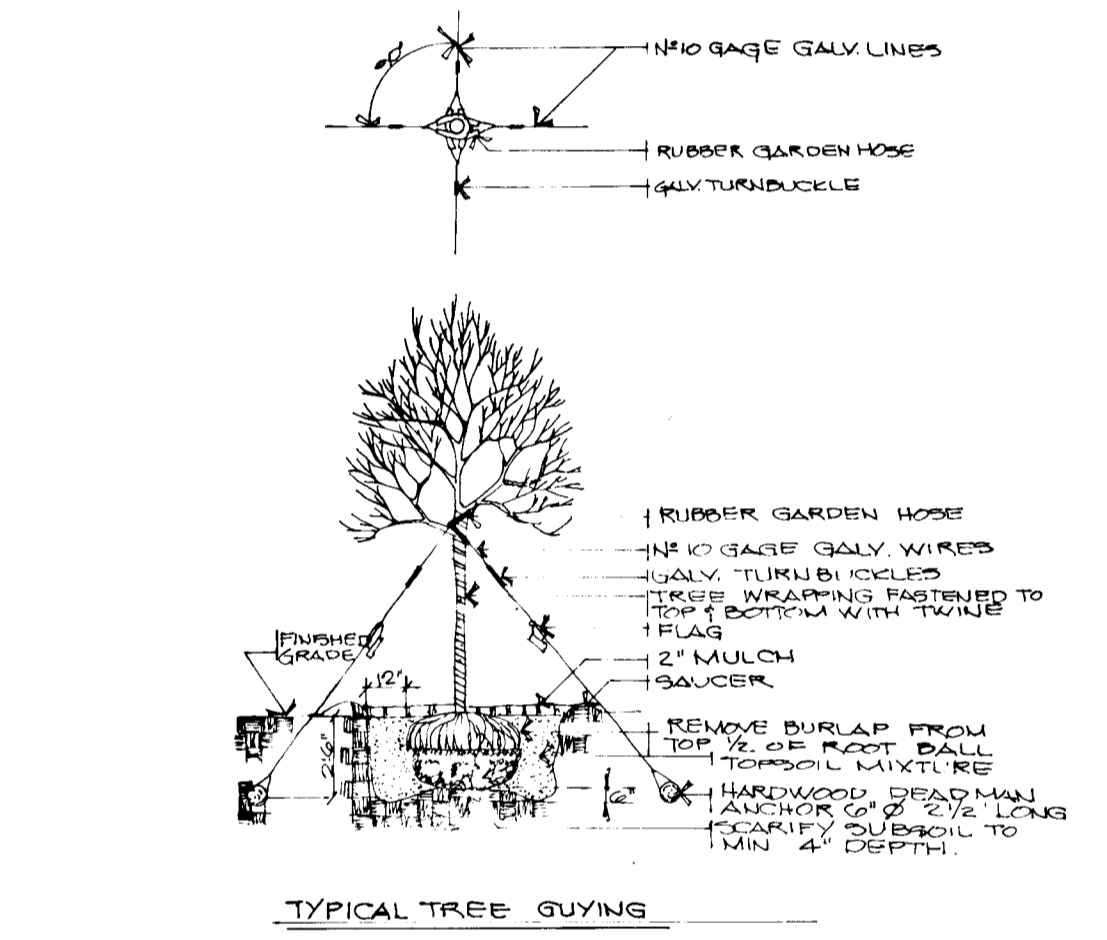 Nº 10 GAGE GALV. LINES
RUBBER GARDEN HOSE
GALV. TURNBUCKLE
RUBBER GARDEN HOSE
Nº 10 GAGE GALV. WIRES
GALV. TURNBUCKLES
TREE WRAPPING FASTENED TO
TOP & BOTTOM WITH TWINE
FLAG
FINISHED
GRADE
2" MULCH
12"
SAUCER
REMOVE BURLAP FROM
TOP 1/2 OF ROOT BALL
TOPSOIL MIXTURE
2'6"
6"
HARDWOOD DEADMAN
ANCHOR 6" Ø 2 1/2' LONG
SCARIFY SUBSOIL TO
MIN 4" DEPTH.
TYPICAL TREE GUYING